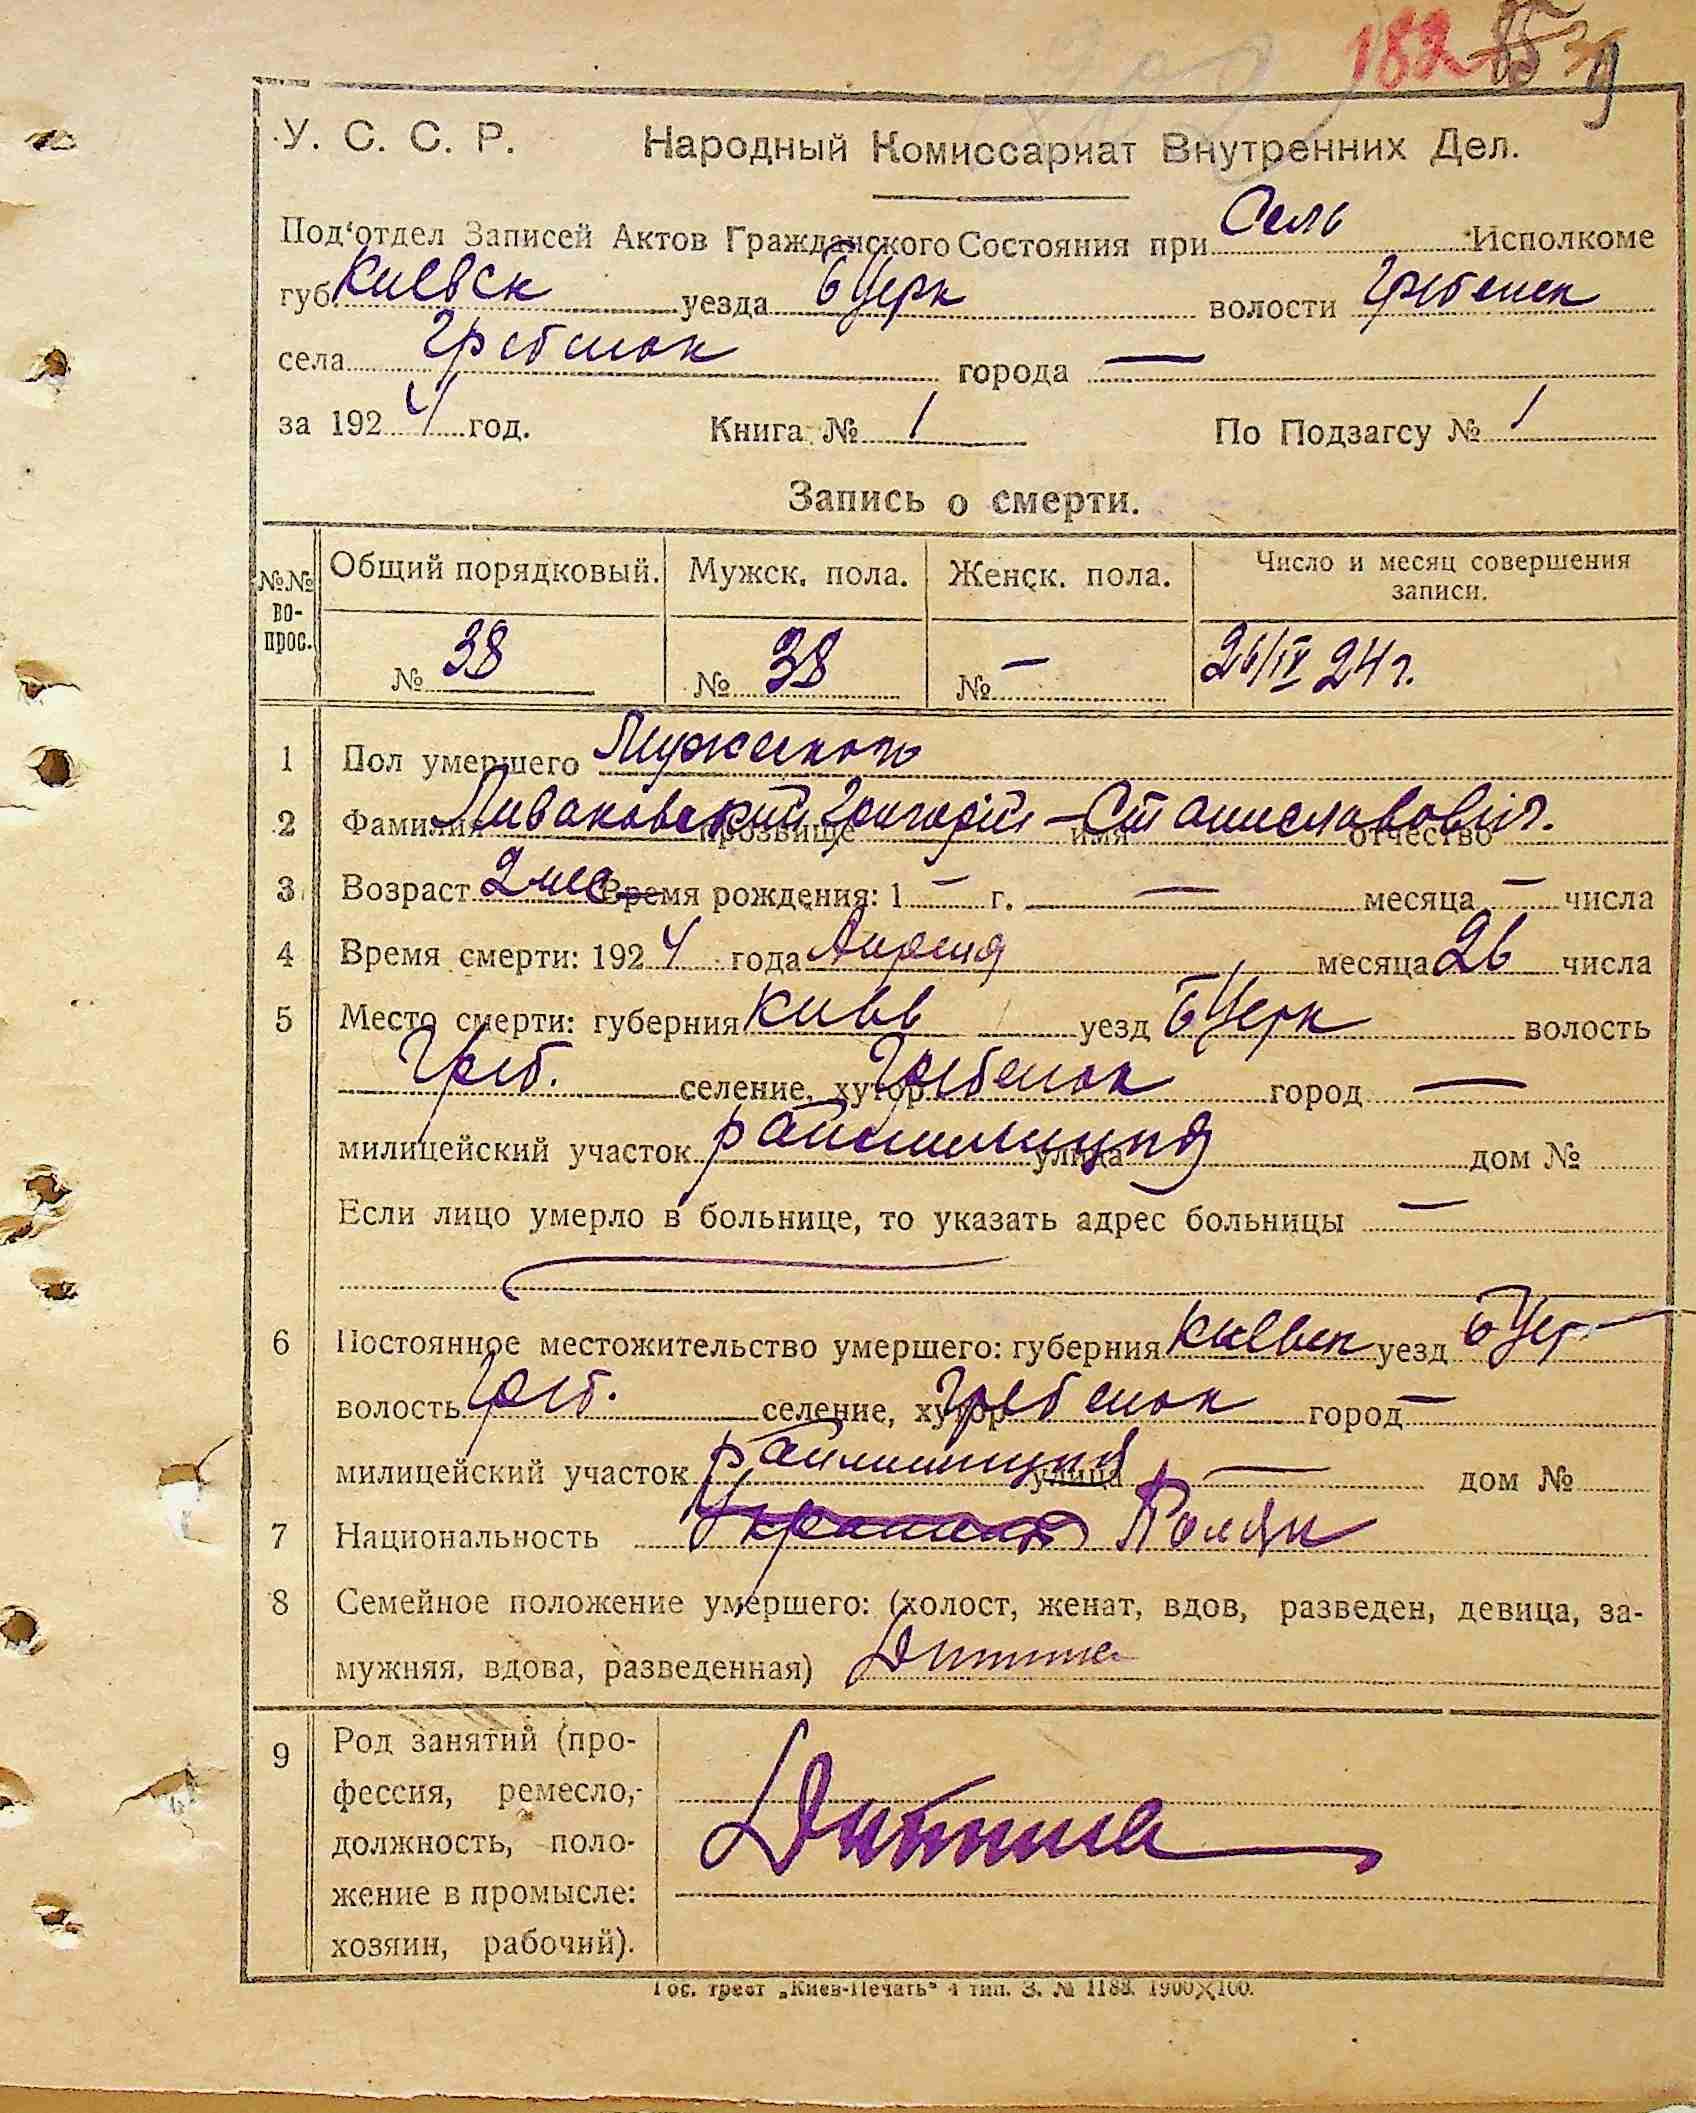 182 85 39
202
У. С. С. Р. Народный Комиссариат Внутренних Дел.
Под'отдел Записей Актов Гражданского Состояния при Сель Исполкоме
губ. Киевск уезда БЦерк волости Гребенск
села Гребенок города —
за 1924 год. Книга № 1 По Подзагсу № 1
Запись о смерти.
№№ во- прос. Общий порядковый. Мужск. пола. Женск. пола. Число и месяц совершения записи.
№ 38 № 38 № — 26/IV 24 г.
1 Пол умершего Мужеского
2 Фамилия Ливаковский прозвище Григорій имя — Станиславовіч. отчество
3 Возраст 2 мес Время рождения: 1 — г. — месяца — числа
4 Время смерти: 1924 года Апреля месяца 26 числа
5 Место смерти: губерния Киев уезд БЦерк волость
Греб. селение, хутор Гребенок город —
милицейский участок раймилиция улица дом №
Если лицо умерло в больнице, то указать адрес больницы —
6 Постоянное местожительство умершего: губерния Киевск уезд БЦер—
волость Греб. селение, хутор Гребенок город —
милицейский участок раймилиция улица — дом №
7 Национальность Поляк
8 Семейное положение умершего: (холост, женат, вдов, разведен, девица, за-
мужняя, вдова, разведенная) Дитина
9 Род занятий (про-
фессия, ремесло,-
должность, поло-
жение в промысле:
хозяин, рабочий).
Дитина
Гос. трест „Киев-Печать" 4 тип. З. № 1188. 1900×100.